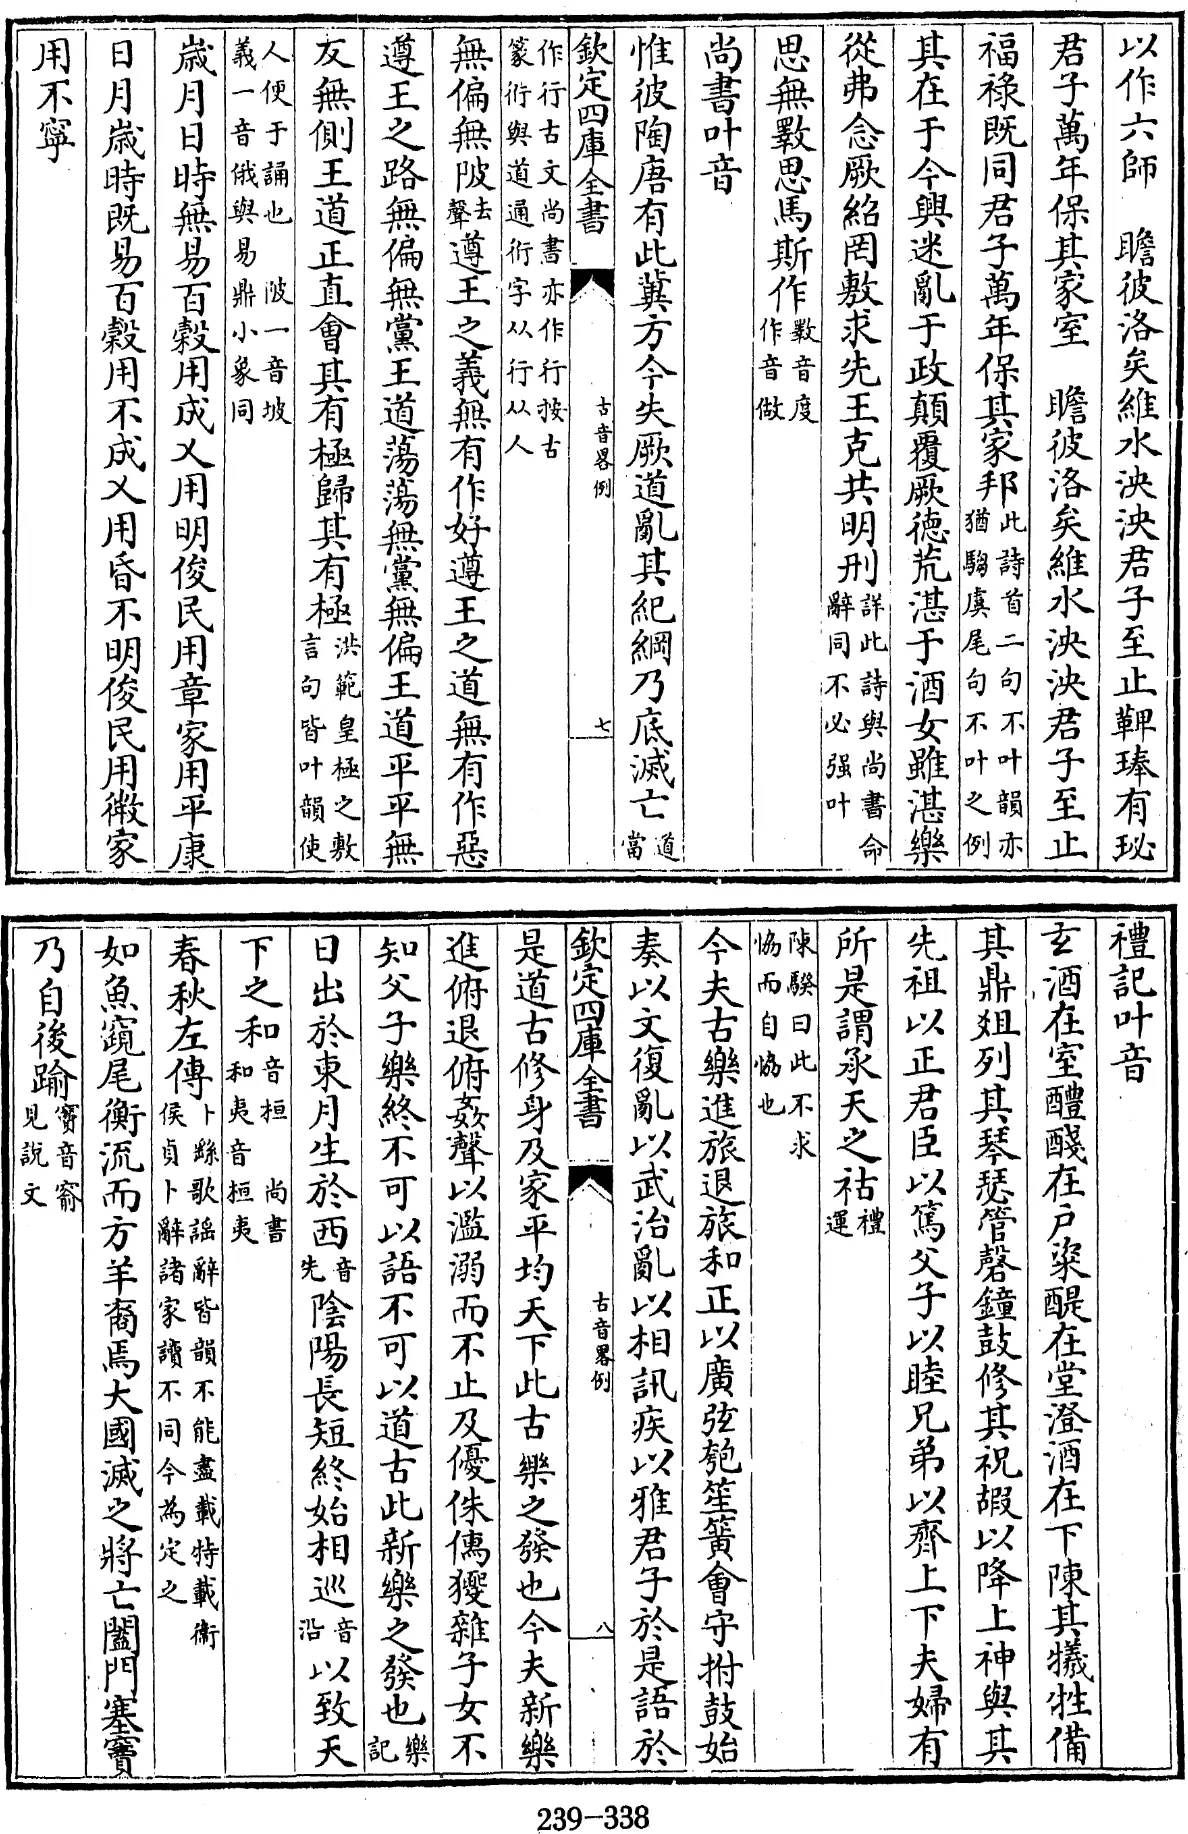 以作六師　瞻彼洛矣維水泱泱君子至止鞞琫有珌
君子萬年保其家室　瞻彼洛矣維水泱泱君子至止
福祿既同君子萬年保其家邦此詩首二句不叶韻亦猶騶虞尾句不叶之例
其在于今興迷亂于政顛覆厥德荒湛于酒女雖湛樂
從弗念厥紹罔敷求先王克共明刑詳此詩與尚書命辭同不必强叶
思無斁思馬斯作斁音度作音做
尚書叶音
惟彼陶唐有此冀方今失厥道亂其紀綱乃底滅亡道當
欽定四庫全書
古音畧例
七
作行古文尚書亦作行按古篆衏與道通衏字从行从人
無偏無陂去聲遵王之義無有作好遵王之道無有作惡
遵王之路無偏無黨王道蕩蕩無黨無偏王道平平無
反無側王道正直會其有極歸其有極洪範皇極之敷言句皆叶韻使
人便于誦也　陂一音坡義一音俄與易鼎小象同
歲月日時無易百穀用成乂用明俊民用章家用平康
日月歲時既易百穀用不成乂用昏不明俊民用微家
用不寧
禮記叶音
玄酒在室醴醆在戶粢醍在堂澄酒在下陳其犧牲備
其鼎俎列其琴瑟管磬鐘鼓修其祝嘏以降上神與其
先祖以正君臣以篤父子以睦兄弟以齊上下夫婦有
所是謂承天之祜禮運
陳騤曰此不求恊而自恊也
今夫古樂進旅退旅和正以廣弦匏笙簧會守拊鼓始
奏以文復亂以武治亂以相訊疾以雅君子於是語於
欽定四庫全書
古音畧例
八
是道古修身及家平均天下此古樂之發也今夫新樂
進俯退俯姦聲以濫溺而不止及優侏儒獶雜子女不
知父子樂終不可以語不可以道古此新樂之發也樂記
日出於東月生於西音先陰陽長短終始相巡音沿以致天
下之和音桓　尚書和夷音桓夷
春秋左傳卜繇歌謡辭皆韻不能盡載特載衞侯貞卜辭諸家讀不同今為定之
如魚竀尾衡流而方羊裔焉大國滅之將亡闔門塞竇
乃自後踰竇音窬見說文
239-338